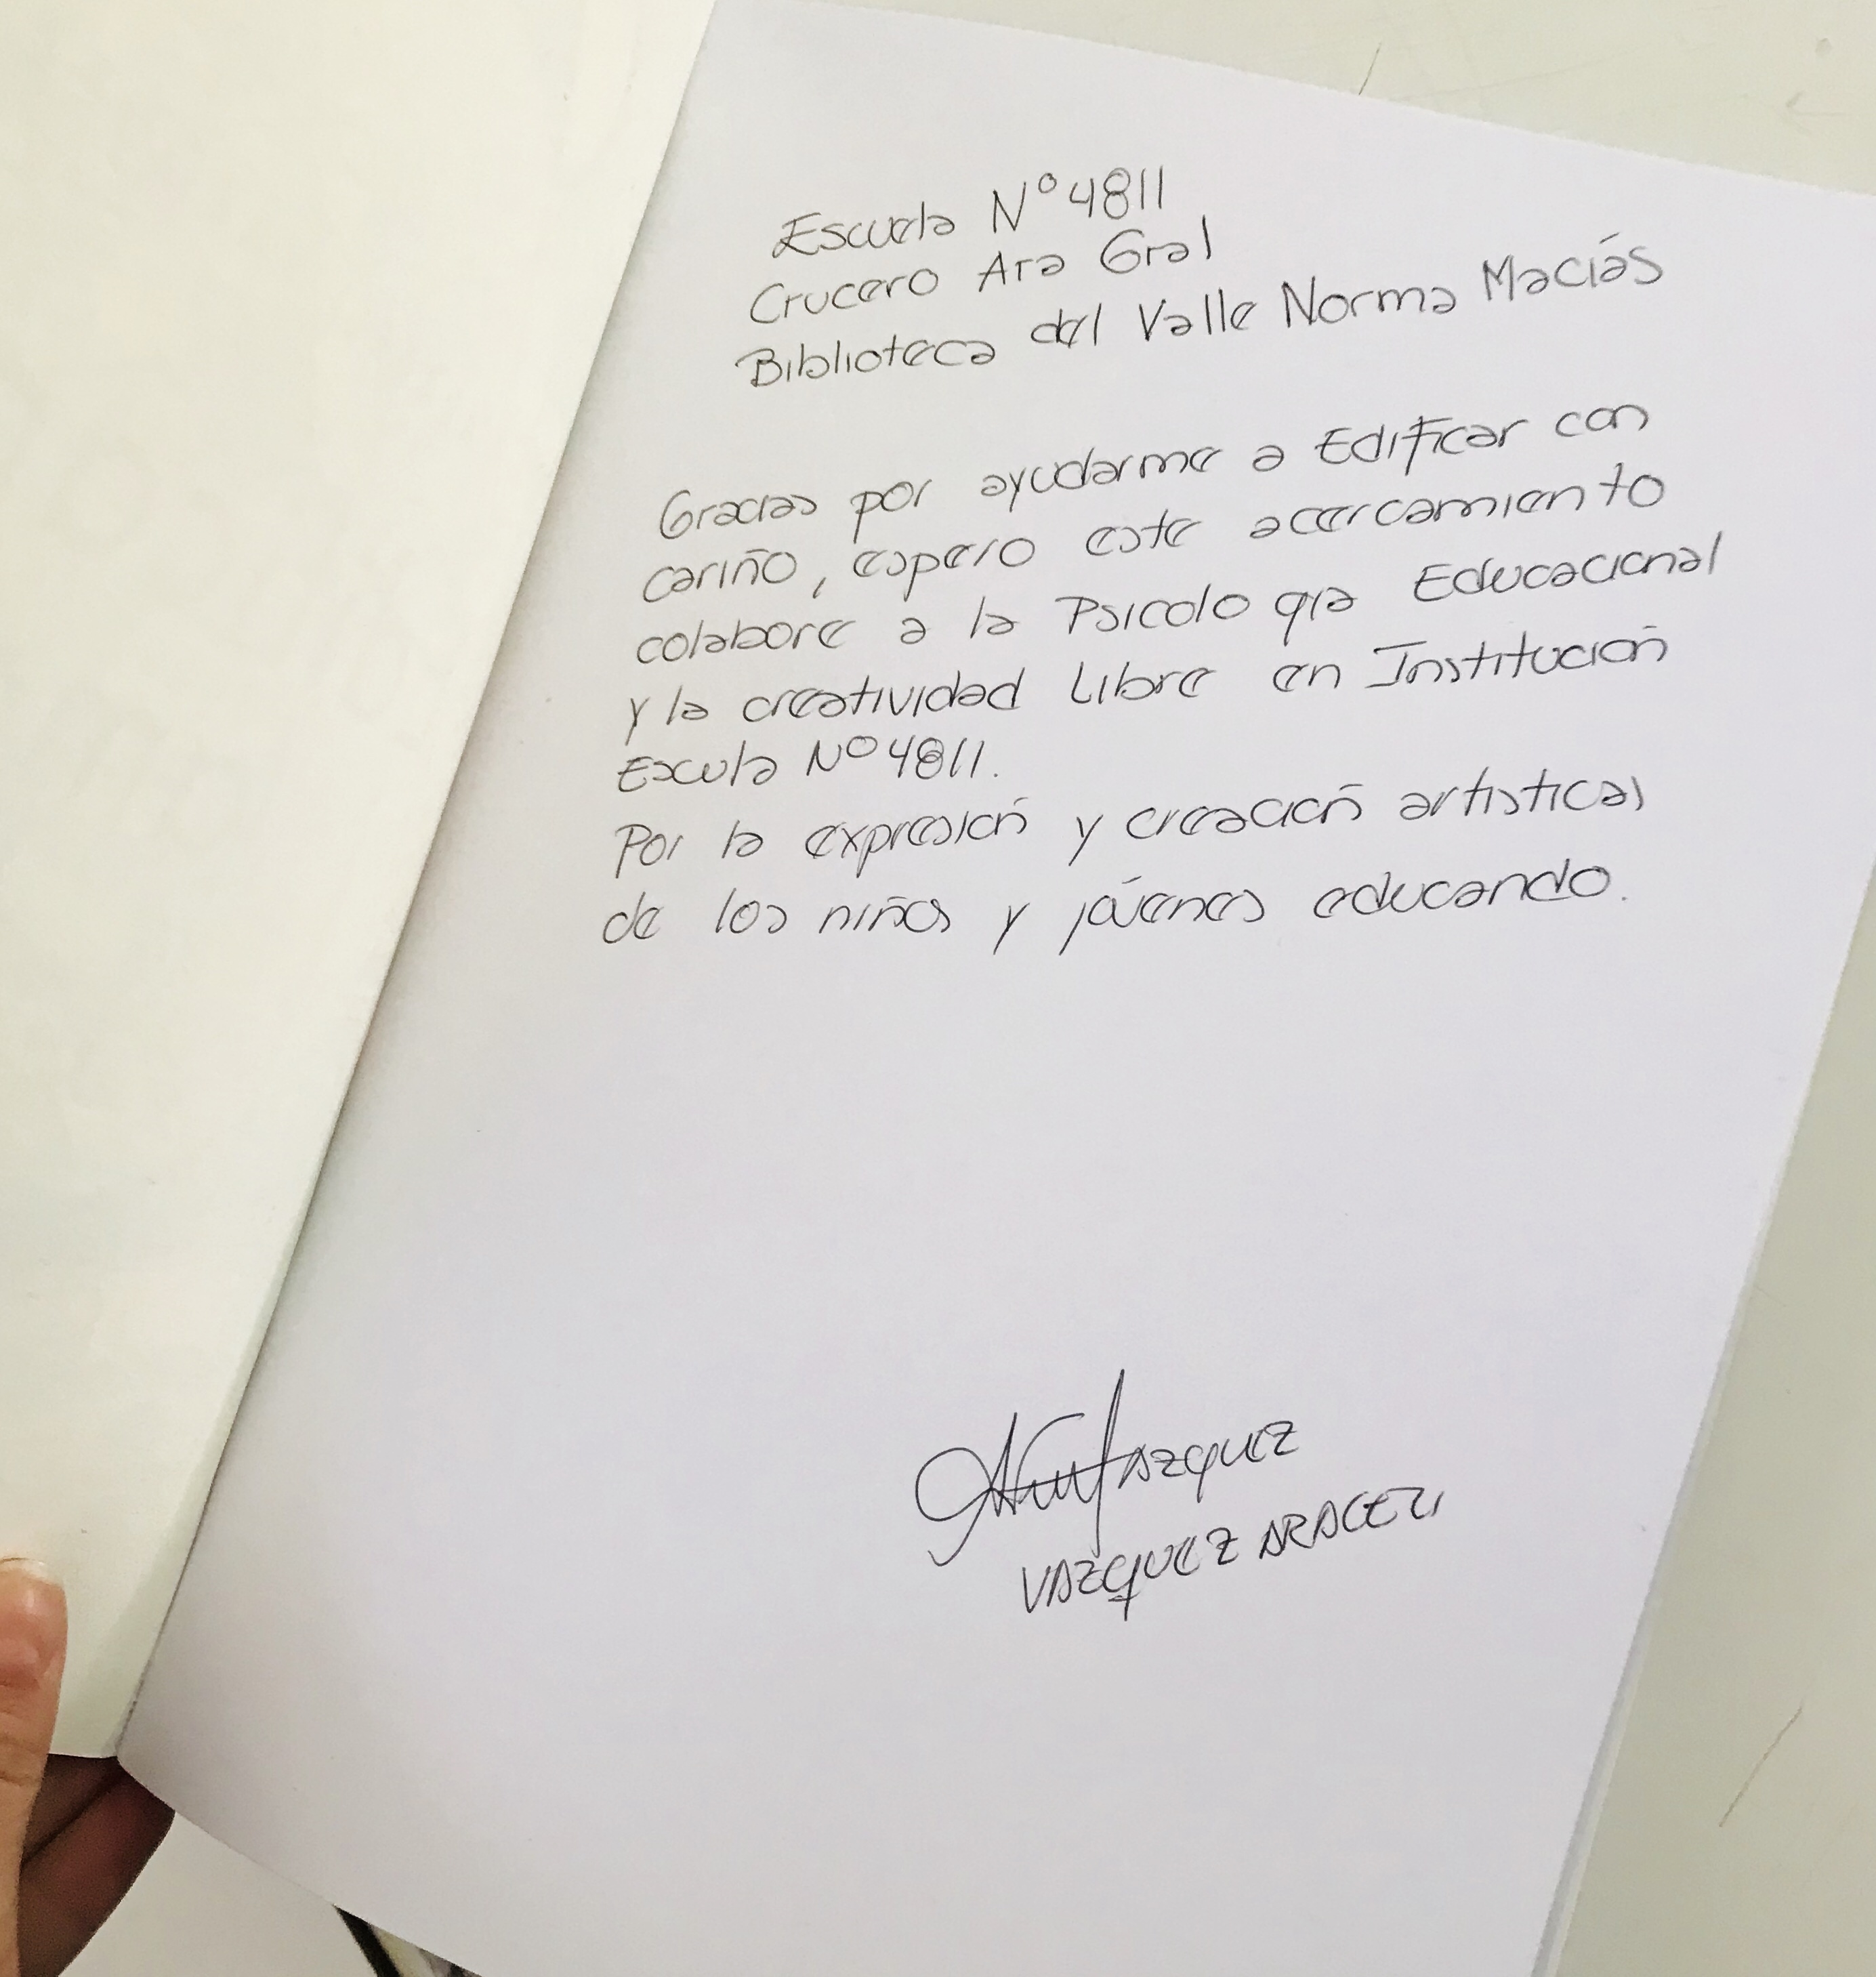 Escuela N° 4811
Crucero Ara Gral
Biblioteca del Valle Norma Maciás
Gracias por ayudarme a Edificar con
cariño, espero este acercamiento
colabore a la Psicologia Educacional
y la creatividad Libre en Institución
Escula N° 4811.
Por la expresión y creación artisticas
de los niños y jóvenes educando.
Vazquez
VAZQUEZ ARACELI